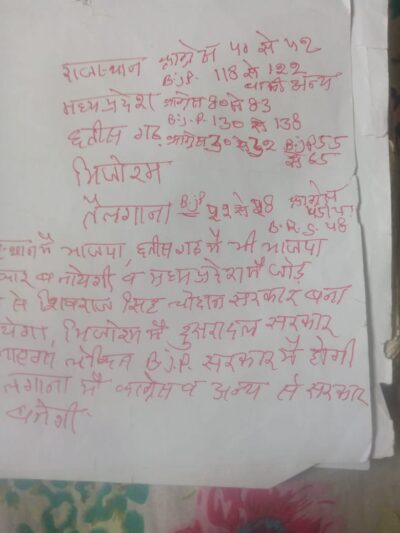 राजस्थान कांग्रेस 50 से 52
B.J.P. 118 से 122
बाकी अन्य
मध्यप्रदेश कांग्रेस 80 से 83
B.J.P. 130 से 138
छतीस गढ़ कांग्रेस 30 से 32 B.J.P 55
से 65
मिजोरम
तेलगाना B.J.P से 28 कांग्रेस
B.R.S. 48
में भाजपा, छतीस गढ़ में भी भाजपा
व मध्यप्रदेश में जोड़
से शिवराज सिंह चौहान सरकार बना
मिजोरम में दुसरादल सरकार
लेकिन B.J.P. सरकार में होगी
लगाना में कांग्रेस व अन्य से सरकार
बनेगी